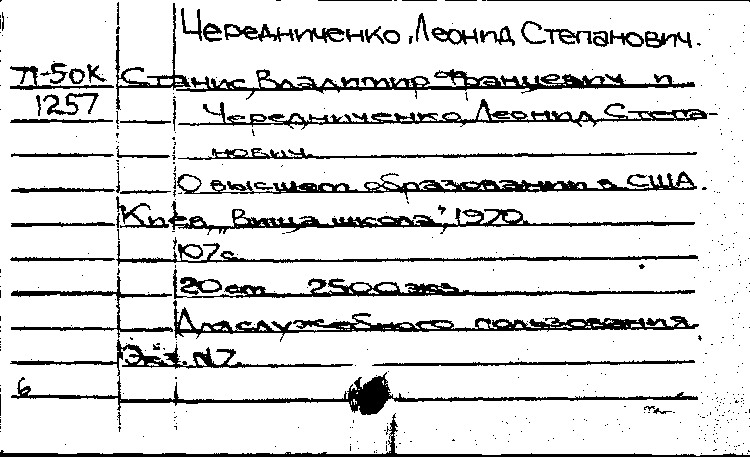 Чередниченко, Леонид Степанович.
П-50К Станис, Владимир Францевич и
1257 Чередниченко, Леонид Степа-
нович.
О высшем образовании в США.
Киев, „Вища школа", 1970.
107с.
20 см 2500 экз.
Для служебного пользования
Экз. №7
6